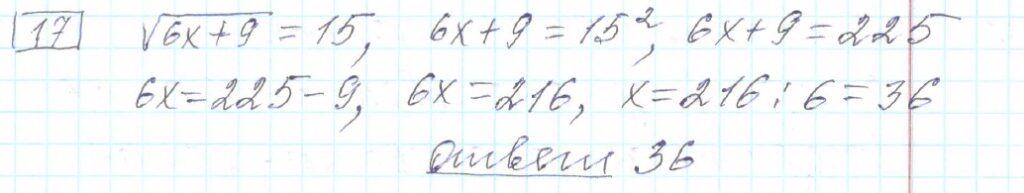 17 √6x+9 = 15, 6x+9 = 15², 6x+9 = 225
6x = 225 - 9, 6x = 216, x = 216 : 6 = 36
ответ 36